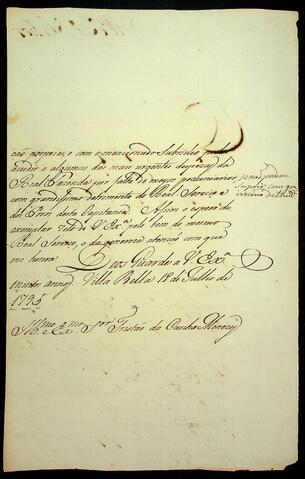 ção proprias, e com o mencionado Subsidio
acudir a algumas das mais urgentes despezas da
Real Fazenda, que por falta de meyos pecuniarios
com grandissimo detrimento do Real Serviço e
do Bem desta Capitania. Assim o espero do
exemplar zelo de V. Exª. pelo bem do mesmo
Real Serviço, e da generoza atenção com que
me honra
Deos Guarde a V. Exª.
muitos annos
Villa Bella 18 de Julho de
Illmo. e Exmo. Snr. Tristão da Cunha Menezes